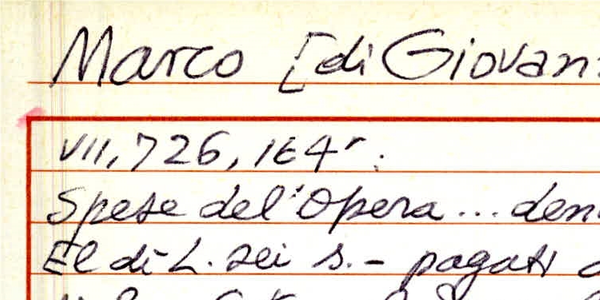 Marco [di Giovan
VII, 726, 164r.
Spese del'Opera... den
El dì L. sei s. - pagati